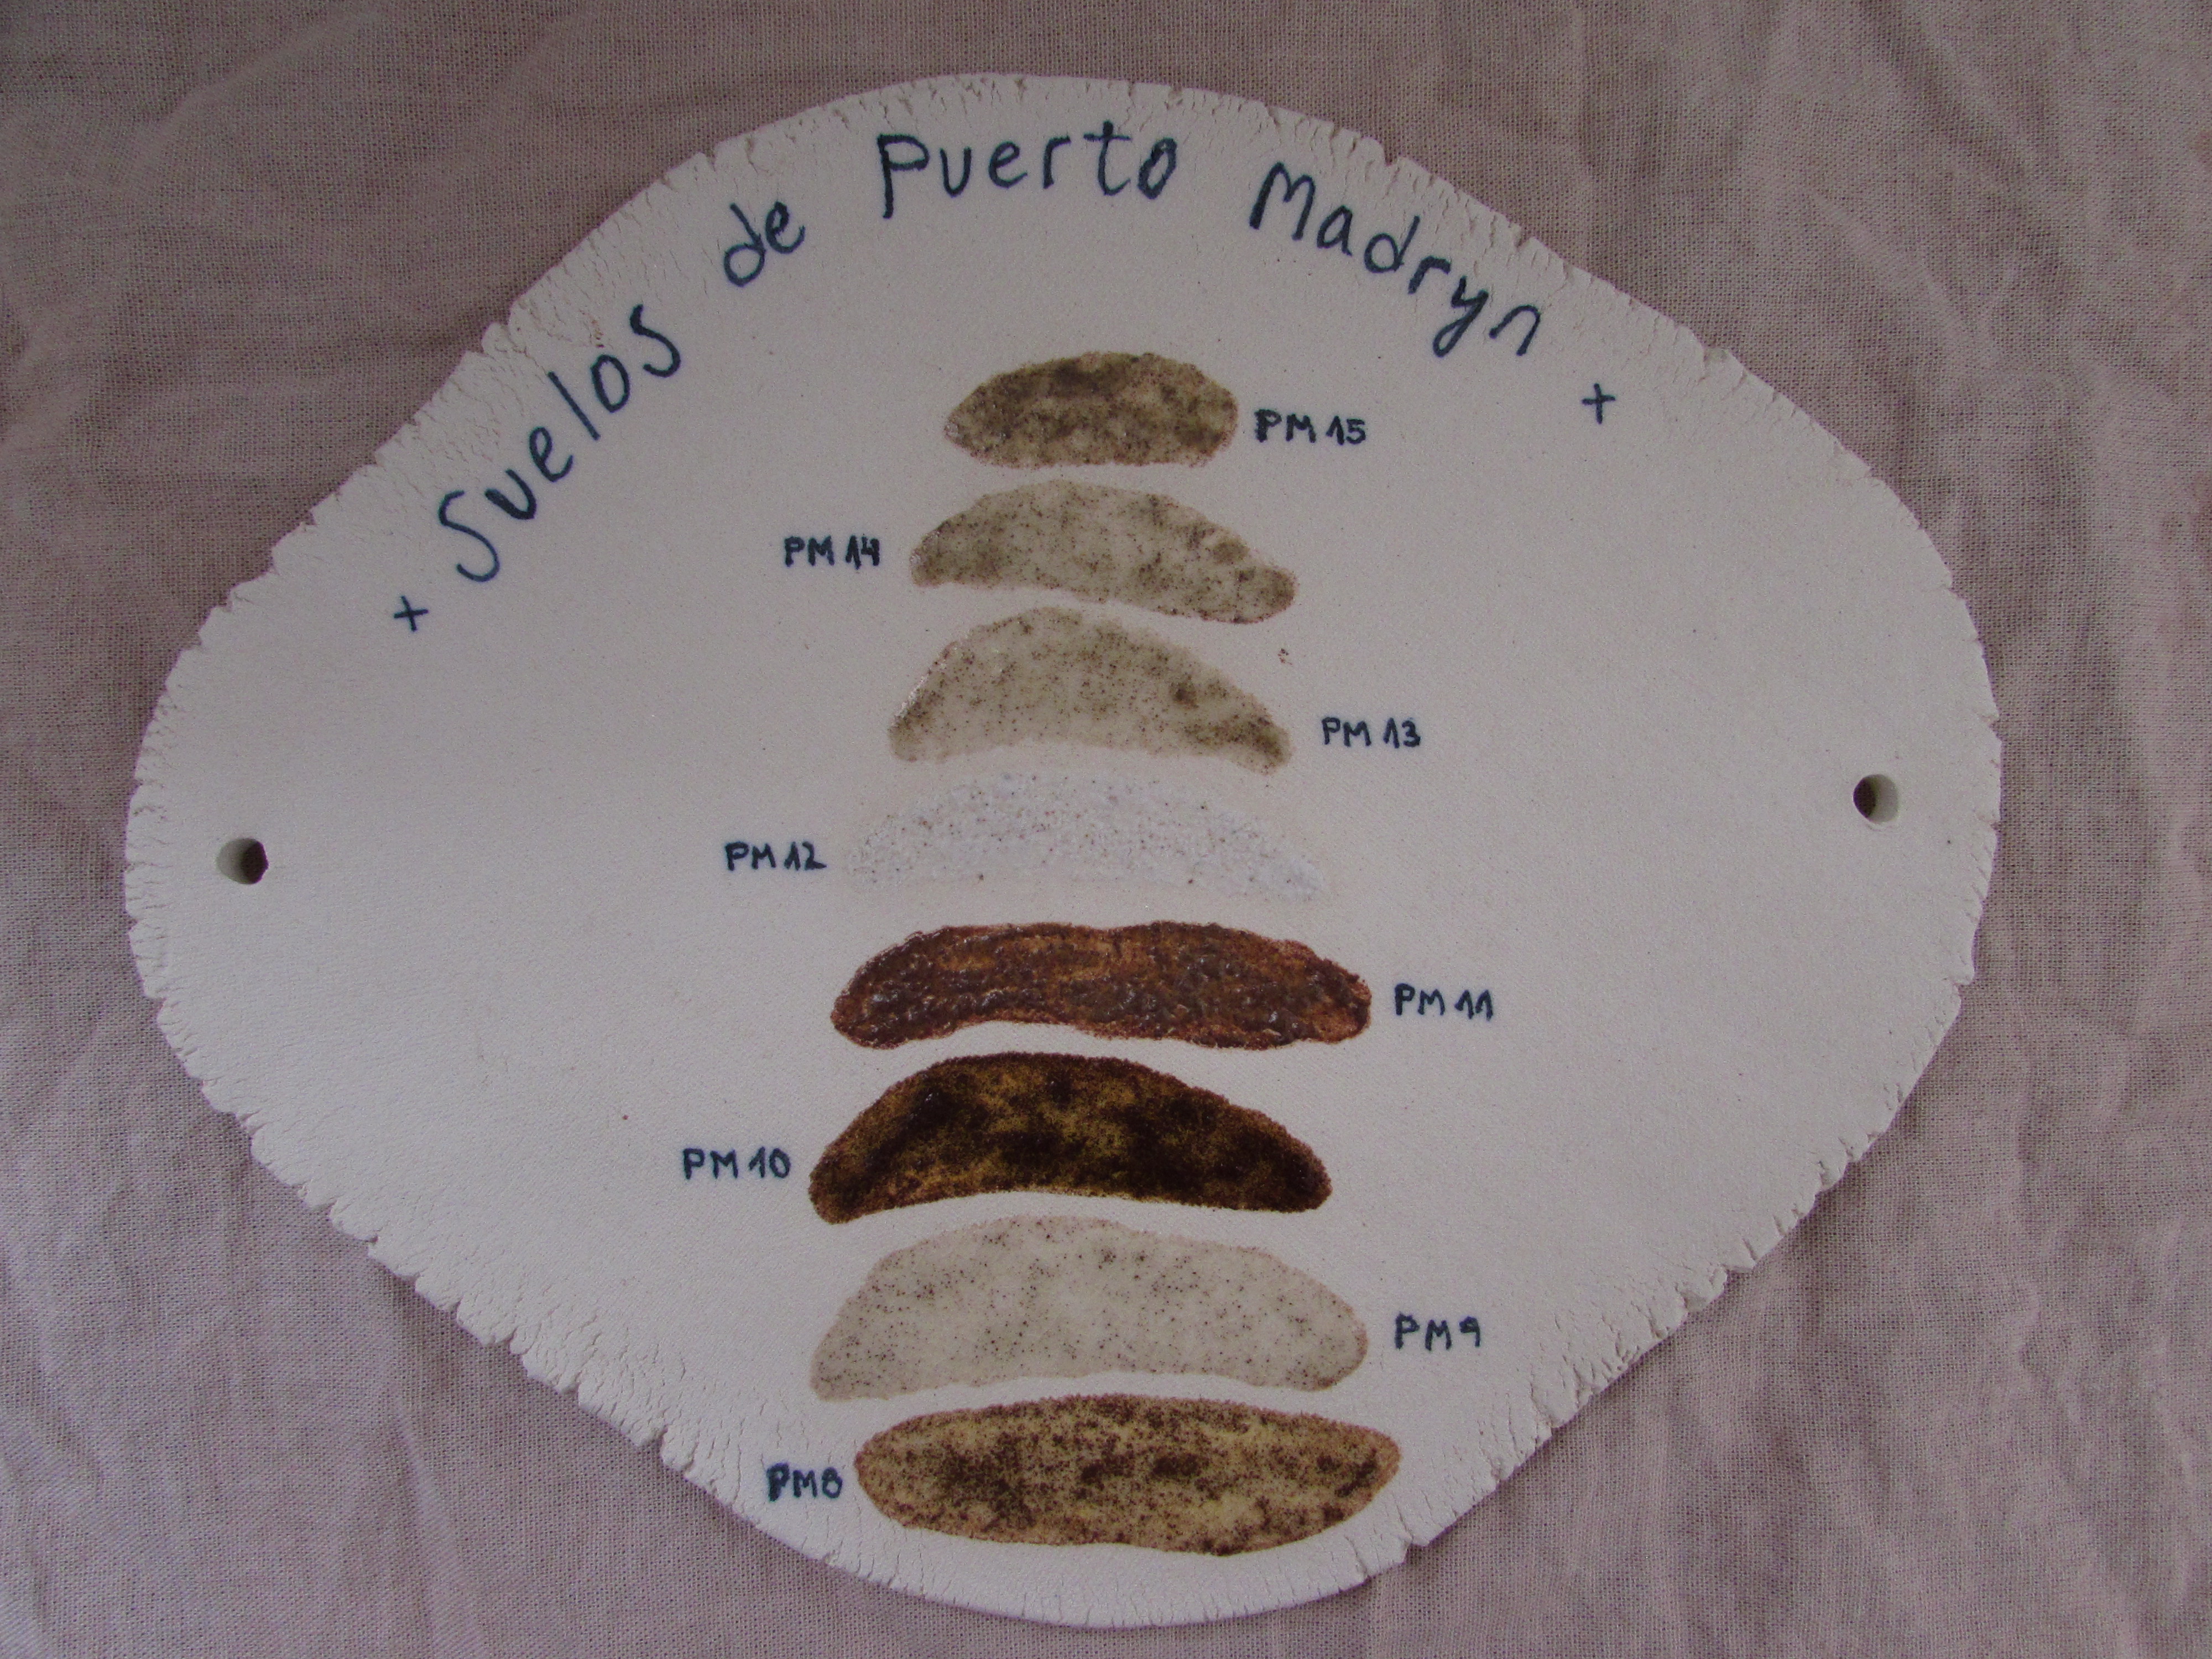 + Suelos de Puerto Madryn +
PM 15
PM 14
PM 13
PM 12
PM 11
PM 10
PM 9
PM8